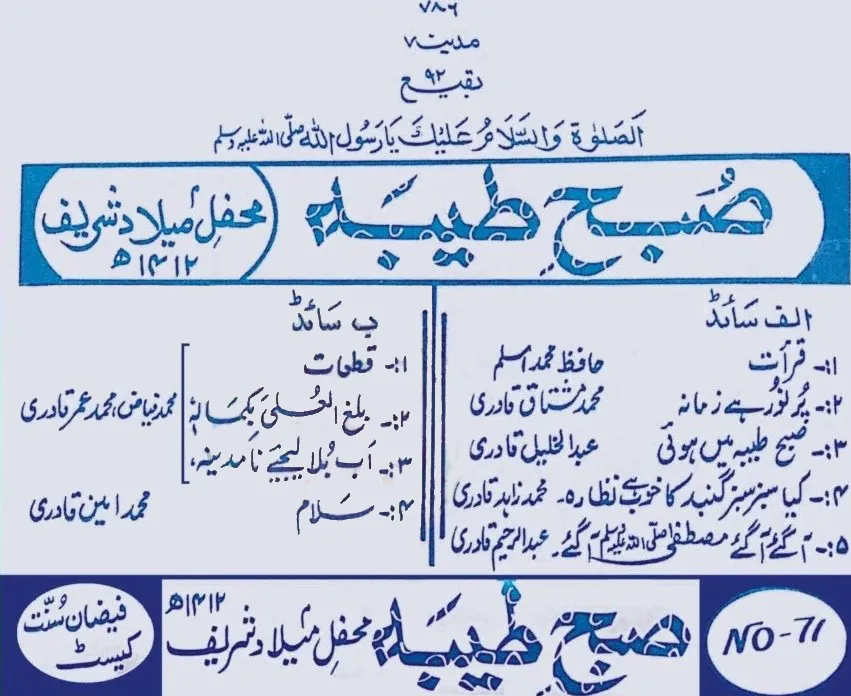 ۷۸۶
مدینہ ۷
۹۲
بقیع
اَلصَّلٰوۃُ وَالسَّلَامُ عَلَیْكَ یَارَسُوْلَ اللہ صلّی اللہ علیہ وسلم
صُبحِ طیبہ
محفلِ میلاد شریف
۱۴۱۲ھ
الف سائڈ
۱:۔ قرأت حافظ محمد اسلم
۲:۔ پُر نُور ہے زمانہ محمد مشتاق قادری
۳:۔ صُبحِ طیبہ میں ہوئی عبدالخلیل قادری
۴:۔ کیا سبز سبز گنبد کا خوب ہے نظارہ۔ محمد زاہد قادری
۵:۔ آگئے آگئے مصطفٰی صلّی اللہ علیہ وسلم آگئے۔ عبدالرحیم قادری
ب سائڈ
۱:۔ قطعات
۲:۔ بلغ العُلیٰ بِکمالہٖ محمد فیاض، محمد عمر قادری
۳:۔ اَب بُلا لیجئے نا مدینہ،
۴:۔ سَلام محمد امین قادری
NO-71
صُبحِ طیبہ
محفلِ میلاد شریف
۱۴۱۲ھ
فیضانِ سُنّت
کیسٹ